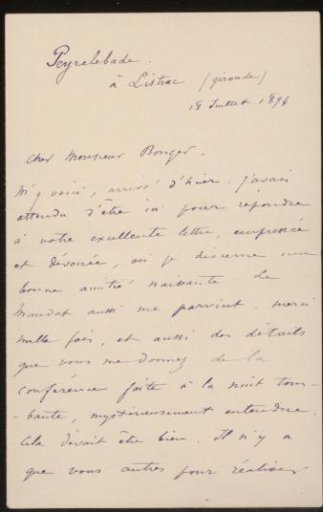 Peyrelebade.
à Listrac (gironde)
18 Juillet 1894
Cher Monsieur Bonger.
M'y voici, arrivé d'hier. J'avais
attendu d'être ici pour répondre
à votre excellente lettre, empressée
et dévouée, où je discerne une
bonne amitié naissante. Le
Mandat aussi me parvint. merci
mille fois, et aussi des détails
que vous me donnez de la
conférence faite à la nuit tom-
-bante, mystérieusement entendue.
Cela devait être bien. Il n'y a
que vous autres pour réaliser